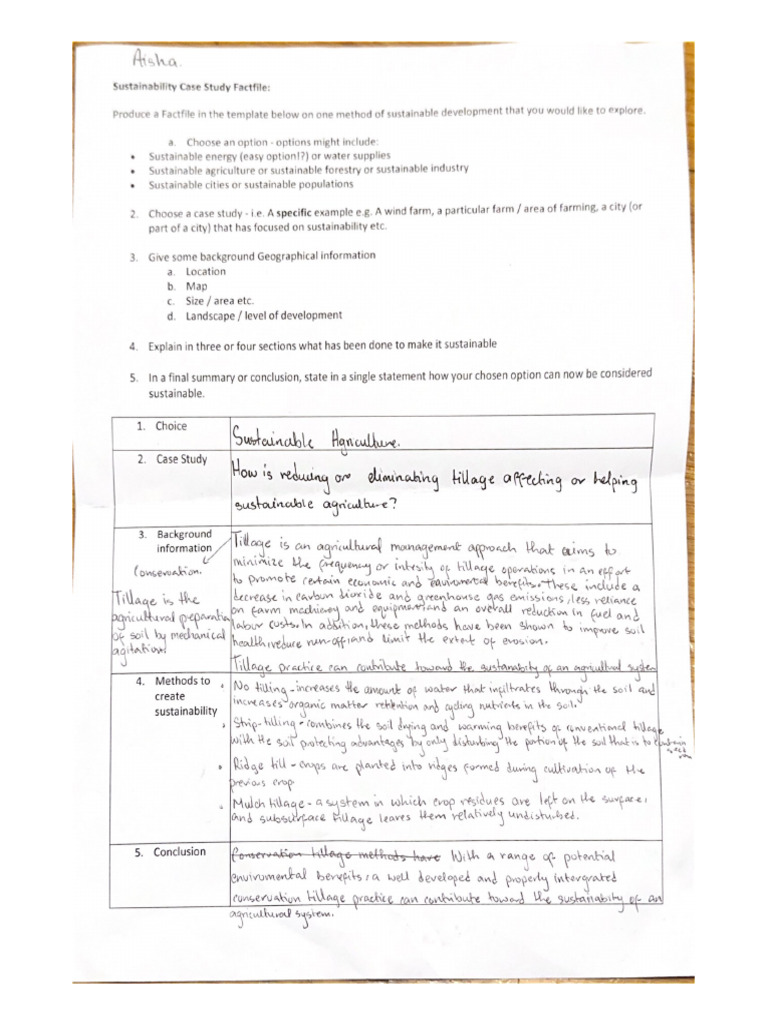 Aisha.
Sustainability Case Study Factfile:
Produce a Factfile in the template below on one method of sustainable development that you would like to explore.
a. Choose an option - options might include:
• Sustainable energy (easy option!?) or water supplies
• Sustainable agriculture or sustainable forestry or sustainable industry
• Sustainable cities or sustainable populations
2. Choose a case study - i.e. A specific example e.g. A wind farm, a particular farm / area of farming, a city (or
part of a city) that has focused on sustainability etc.
3. Give some background Geographical information
a. Location
b. Map
c. Size / area etc.
d. Landscape / level of development
4. Explain in three or four sections what has been done to make it sustainable
5. In a final summary or conclusion, state in a single statement how your chosen option can now be considered
sustainable.
1. Choice
Sustainable Agriculture.
2. Case Study
How is reducing or eliminating tillage affecting or helping
sustainable agriculture?
3. Background
information
Conservation.
Tillage is the
agricultural preparation
of soil by mechanical
agitation.
Tillage is an agricultural management approach that aims to
minimize the frequency or intesity of tillage operations in an effort
to promote certain economic and enviromental benefits. These include a
decrease in carbon dioxide and greenhouse gas emissions, less reliance
on farm machinery and equipment, and an overall reduction in fuel and
labour costs. In addition, these methods have been shown to improve soil
health, reduce run-off, and limit the extent of erosion.
Tillage practice can contribute toward the sustainabity of an agricultural system
4. Methods to
create
sustainability
• No tilling - increases the amount of water that infiltrates through the soil and
increases organic matter retention and cycling nutrients in the soil.
• Strip-tilling - combines the soil drying and warming benefits of conventional tillage
with the soil protecting advantages by only disturbing the portion of the soil that is to contain
• Ridge till - crops are planted into ridges formed during cultivation of the
previous crop
• Mulch tillage - a system in which crop residues are left on the surface,
and subsurface tillage leaves them relatively undisturbed.
5. Conclusion
Conservation tillage methods have With a range of potential
enviromental benefits, a well developed and properly intergrated
conservation tillage practice can contribute toward the sustainabity of an
agricultural system.